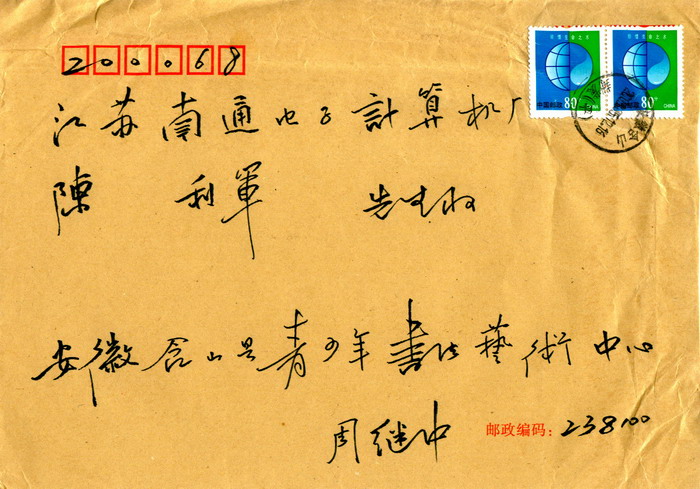 200068
珍惜生命之水
中国邮政 80分 CHINA
中国邮政 80分 CHINA
江苏南通电子計算机厂
陳利軍 先生收
安徽含山县青少年書法藝術中心
周继中
邮政编码：238100